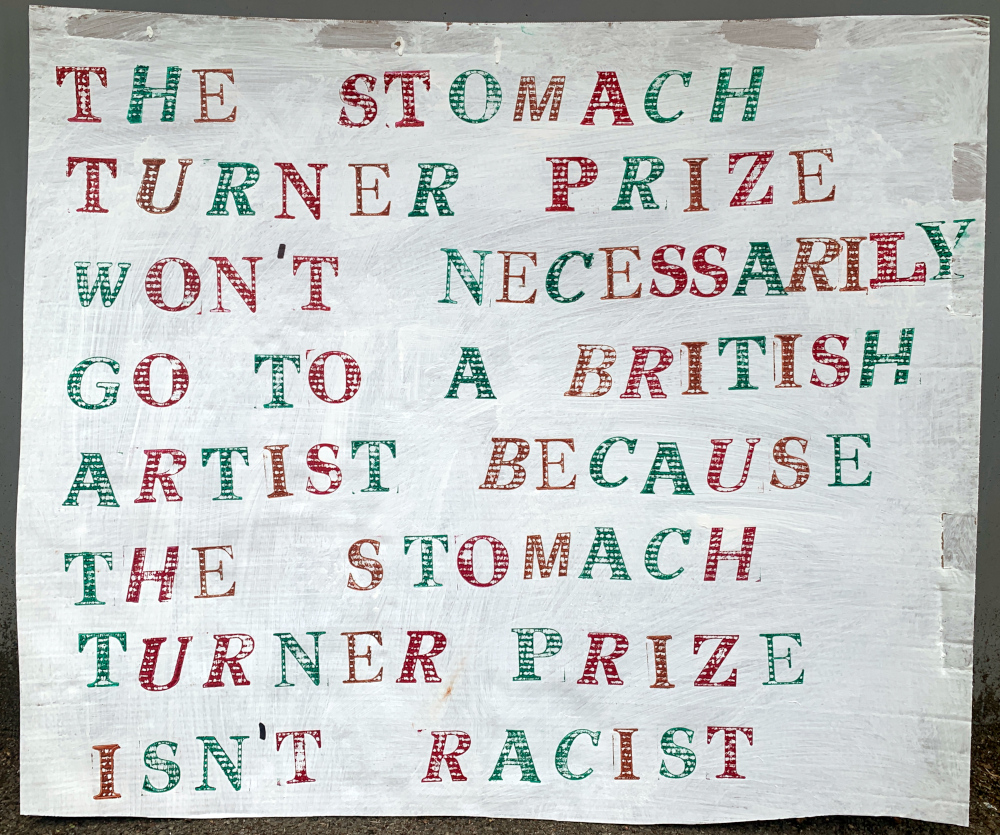 THE STOMACH
TURNER PRIZE
WON'T NECESSARILY
GO TO A BRITISH
ARTIST BECAUSE
THE STOMACH
TURNER PRIZE
ISN'T RACIST